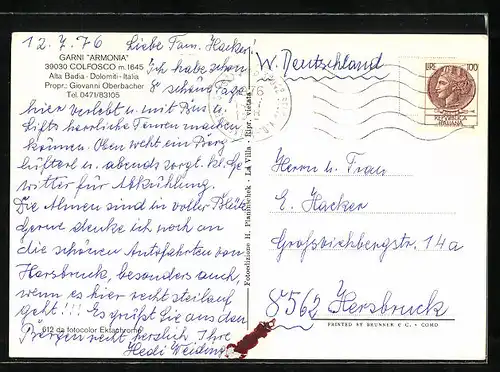 12.7.76 Liebe Fam. Hacker!
GARNI "ARMONIA"
39030 COLFOSCO m. 1645
Alta Badia - Dolomiti - Italia
Propr.: Giovanni Oberbacher
Tel. 0471/83105
Ich habe schon
8 schöne Tage
hier verlebt u. mit Bus u.
Lifts herrliche Touren machen
können. Oben weht ein Berg
lüfterl u. abends sorgt kl. Ge-
witter für Abkühlung.
Die Almen sind in voller Blüte
Gerne denke ich noch an
die schönen Autofahrten von
Hersbruck, besonders auch,
wenn es hier recht steil auf
geht!!! Es grüßt Sie aus den
Bergen recht herzlich Ihre
Hedi
612 da fotocolor Ektachrome
Fotoedizione H. Planinschek - La Villa - Ripr. vietata
W. Deutschland
LIRE 100
REPVBBLICA
ITALIANA
Herrn u. Frau
E. Hacker
Großviehbergstr. 14a
8562 Hersbruck
PRINTED BY BRUNNER & C. - COMO